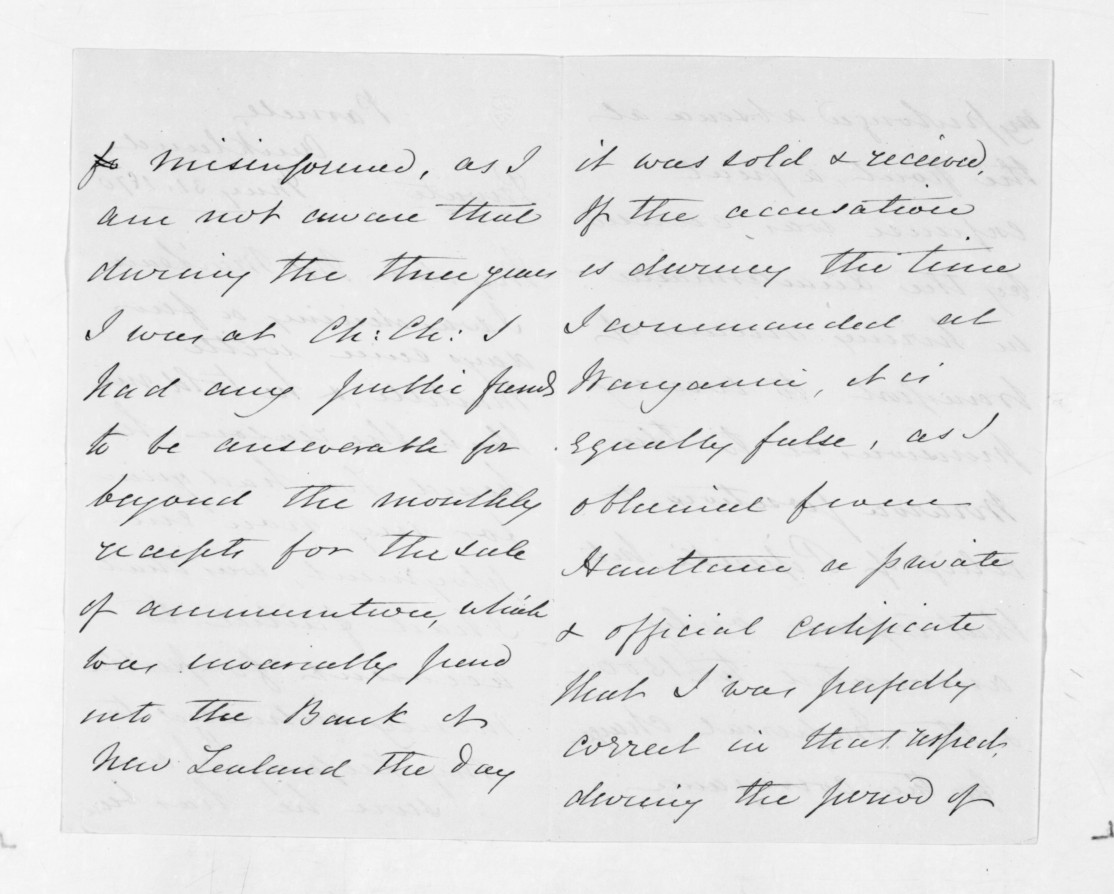 misinformed, as I
am not aware that
during the three years
I was at Ch: Ch: I
had any public funds
to be answerable for
beyond the monthly
receipts for the sale
of ammunition, which
was invariably paid
into the Bank of
New Zealand the day
it was sold & received,
If the accusation
is during the time
I commanded at
Wanganui, it is
equally false, as I
obtained from
Haultain a private
& official certificate
that I was perfectly
correct in that respect
during the period of